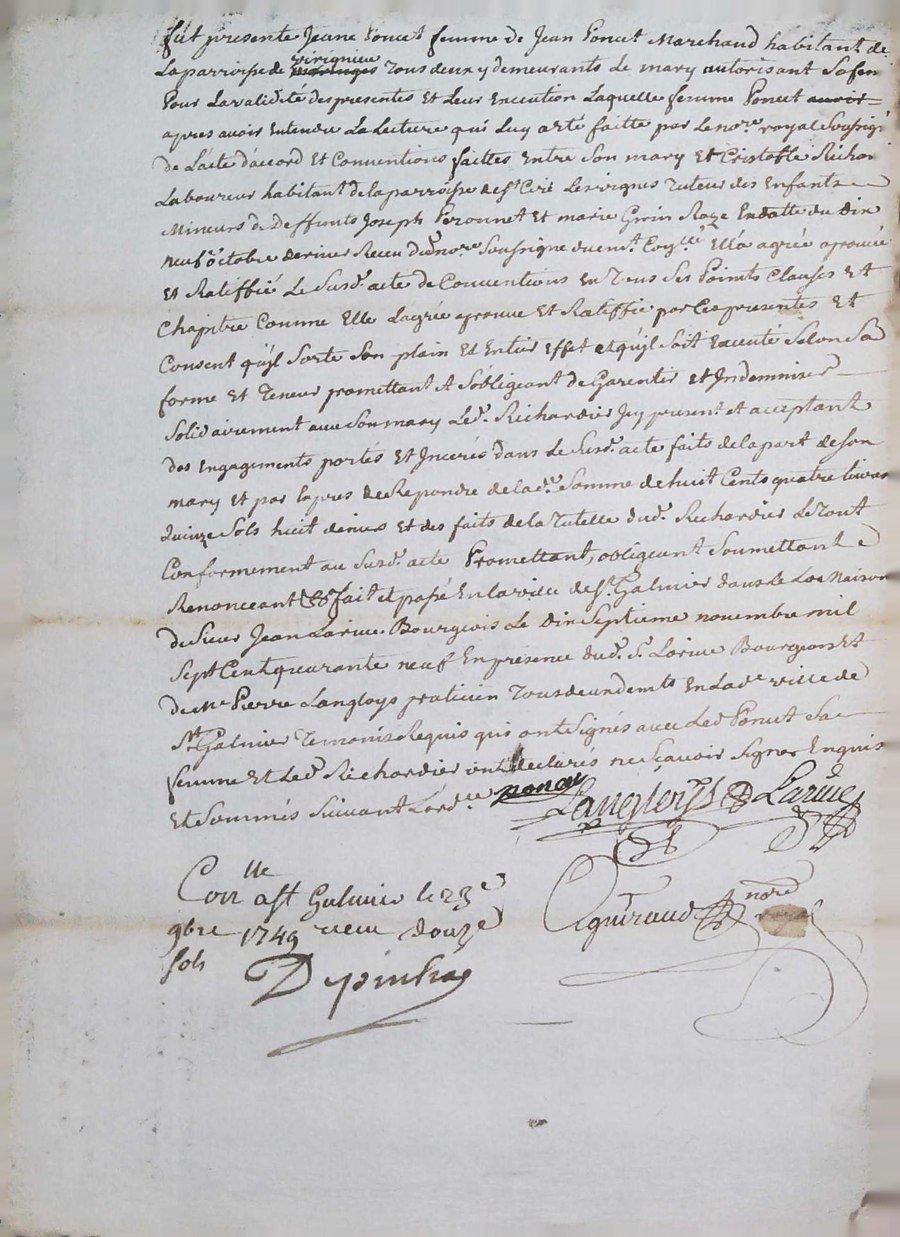 fut presente Jeane Poncet femme de Jean Poncet Marchand habitant de
Laparroisse de virignieu tous deux y demeurants Le mary autorisant Safem
Pour Lavalidité despresentes Et Leur Execution Laquelle femme Poncet avoir
apres avoir Entendu La Lecture qui Luy a eté faitte par Le nore. royal Soussigé
de L'acte d'accord Et Conventions faittes Entre Son mary Et Cristofle Richar
Laboureur habitant delaparroisse de st Ciré Les vignes tuteur des Enfants
Mineurs de Deffunts Joseph Peronnet Et marie Grin Roze En datte du dix
neuf octobre dernier Receu Du nore. Soussigné duemt. Elle a agrée aprouvé
Et Ratiffié Le Susd. acte de Conventions En tous Ses Points Clauses Et
Chapitre Comme Elle Lagrée aprouve Et Ratiffie par Ces presentes Et
Consent qu'jl Sorte Son plain Et Entier Effet et qu'jl Soit Executé Selon Sa
forme Et Teneur promettant Et S'obligeant de Garentir et Indemniser
Solidairement avec Son mary Led. Richardier Icy present et aceptant
des Engagements portés Et Incerés dans Le Susd. acte faits de la part de Son
mary Et par Exprès de Repondre de lade. Somme de huit Cents quatre Livres
Quinze Sols huit deniers Et des faits de la Tutelle dud. Richardier Le Tout
Conformement au Susd. acte Promettant, obligeant Soumettant
Renonceant &a fait et passé En la ville de st. Galmier dans Le Lor Maison
de Sieur Jean Larive Bourgeois Le Dix Septieme novembre mil
Sept Cent quarante neuf En presence dud. Sr. Larive Bourgeois Et
de Me Pierre Langloys praticien Tous deux demts En Lade ville de
St Galmier Temoins Requis qui ont Signés avec Led Poncet Sa
femme Et Led. Richardier ont declarés ne Scavoir Signer Enquis
Et Sommés Suivant L'ordce poncet
Langloys Larive
Conlle a st Galmier le 23e
9bre 1749 receu douze
sols
Aguiraud nore
Depinhac